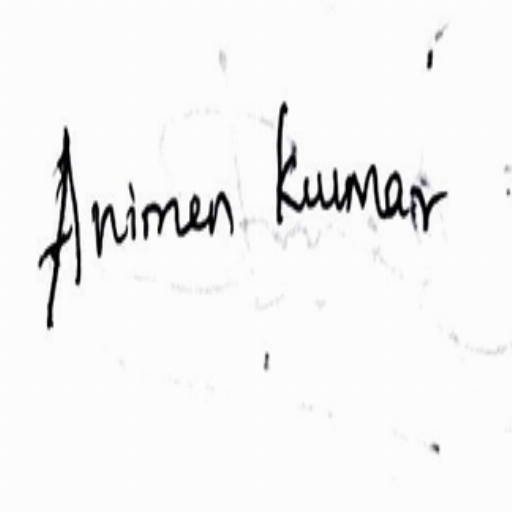 Animen Kumar